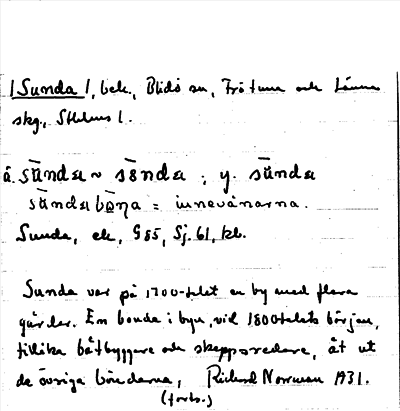 /Sunda/, bek., Blidö sn, Frötuna och Länna
skg., Sthlms l.
å. sūnda ~ sēnda ; y. sūnda
sūndabōna = innevånarna.
Sunda, ek, G 85, Sj. 61, kb.
Sunda var på 1700-talet en by med flera
gårdar. En bonde i byn, vid 1800-talets början,
tillika båtbyggare och skeppsredare, åt ut
de övriga bönderna, Richard Norrman 1931.
(forts.)